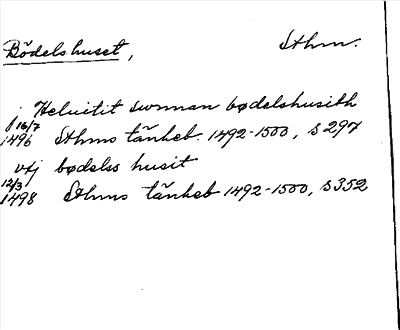 Bödelshuset, Sthm.
j Heluitit sunnan bødelshusith
16/7
1496 Sthms tänkeb. 1492-1500, s 297
vtj bødelss husit
12/3
1498 Sthms tänkeb 1492-1500, s 352